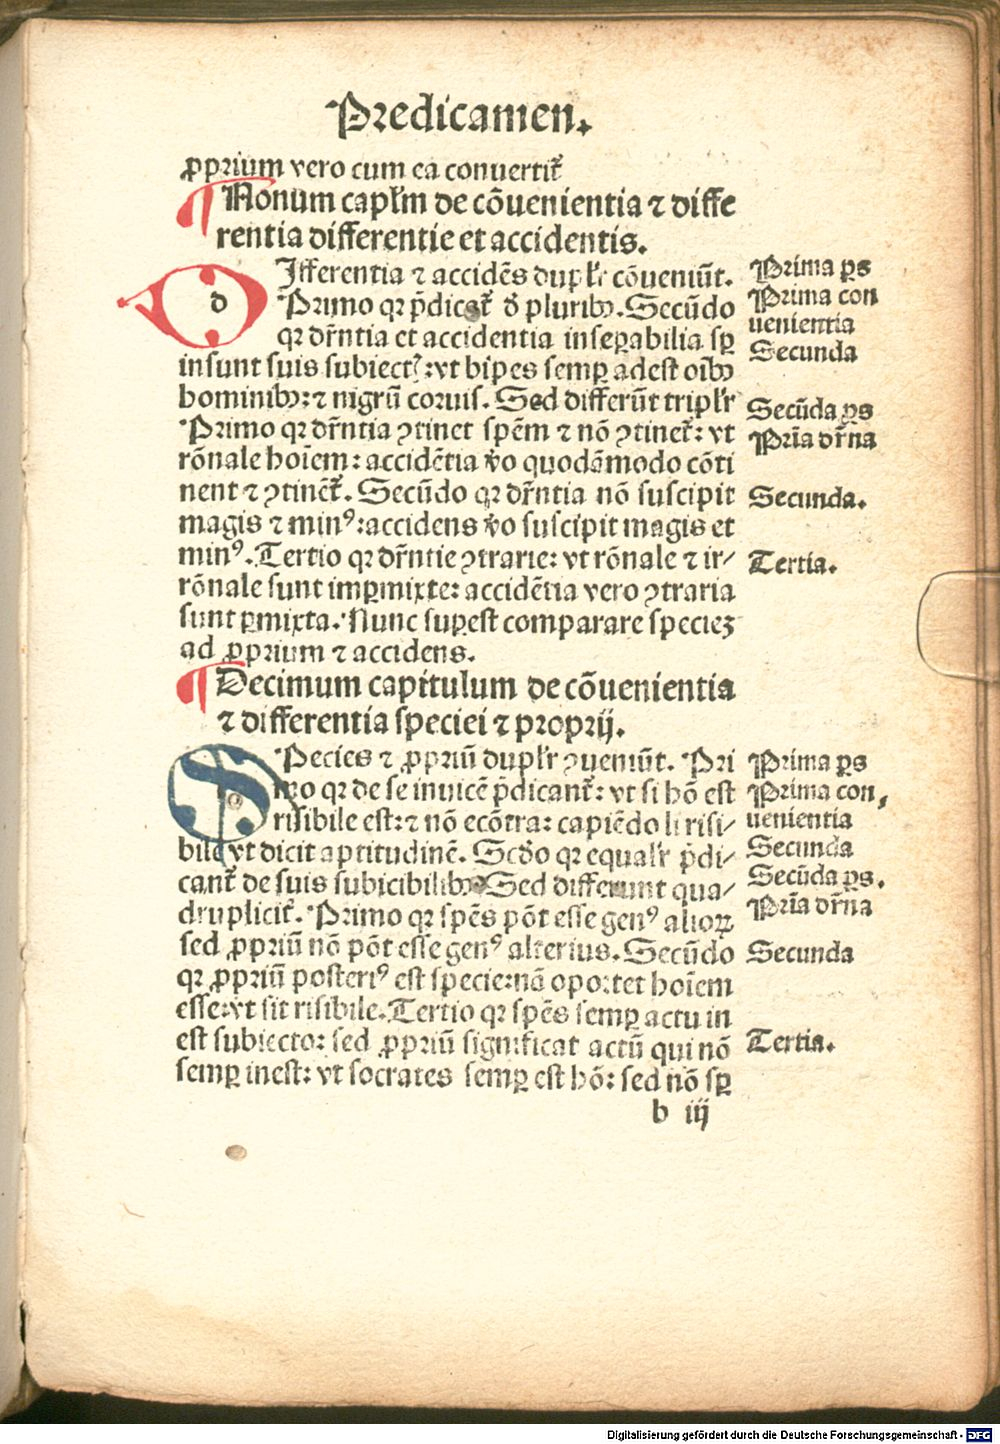 Predicamen.
ꝓprium vero cum ea conuertit᷑
¶ Nonum capl'm de cõuenientia ⁊ diffe
rentia differentie et accidentis.
DIfferentia ⁊ accidẽs dupl'r cõueniũt.
Primo qꝛ p̃dicãt᷑ ð pluribꝰ. Secũdo
qꝛ dr̃ntia et accidentia inseꝑabilia sꝑ
insunt suis subiect': vt bipes semꝑ adest oĩbꝰ
hominibꝰ: ⁊ nigrũ coruis. Sed differũt tripl'r
Primo qꝛ dr̃ntia ꝯtinet spẽm ⁊ nõ ꝯtinet᷑: vt
rõnale hoĩem: accidẽtia v̊o quodãmodo cõti
nent ⁊ ꝯtinẽt᷑. Secũdo qꝛ dr̃ntia nõ suscipit
magis ⁊ minꝰ: accidens v̊o suscipit magis et
minꝰ. Tertio qꝛ dr̃ntie ꝯtrarie: vt rõnale ⁊ ir⸗
rõnale sunt imꝑmixte: accidẽtia vero ꝯtraria
sunt ꝑmixta. Nunc suꝑest comparare speciez
ad ꝓprium ⁊ accidens.
¶ Decimum capitulum de cõuenientia
⁊ differentia speciei ⁊ proprij.
SPecies ⁊ ꝓpriũ dupl'r ꝯueniũt. Pri
mo qꝛ de se inuicẽ p̃dicant᷑: vt si hõ est
risibile est: ⁊ nõ ecõtra: capiẽdo li risi⸗
bile vt dicit aptitudinẽ. Scðo qꝛ equal'r p̃di⸗
cant᷑ de suis subicibilibꝰ Sed differunt qua⸗
druplicit᷑. Primo qꝛ spẽs põt esse genꝰ alioꝝ
sed ꝓpriũ nõ põt esse genꝰ alterius. Secũdo
qꝛ ꝓpriũ posteriꝰ est specie: nã oportet hoĩem
esse: vt sit risibile. Tertio qꝛ spẽs semꝑ actu in
est subiecto: sed ꝓpriũ significat actũ qui nõ
semꝑ inest: vt socrates semꝑ est hõ: sed nõ sꝑ
b iij
Prima ꝑs
Prima con
uenientia
Secunda
Secũda ꝑs
Prĩa dr̃na
Secunda.
Tertia.
Prima ꝑs
Prima con,
uenientia
Secunda
Secũda ꝑs.
Prĩa dr̃na
Secunda
Tertia.
Digitalisierung gefördert durch die Deutsche Forschungsgemeinschaft - DFG